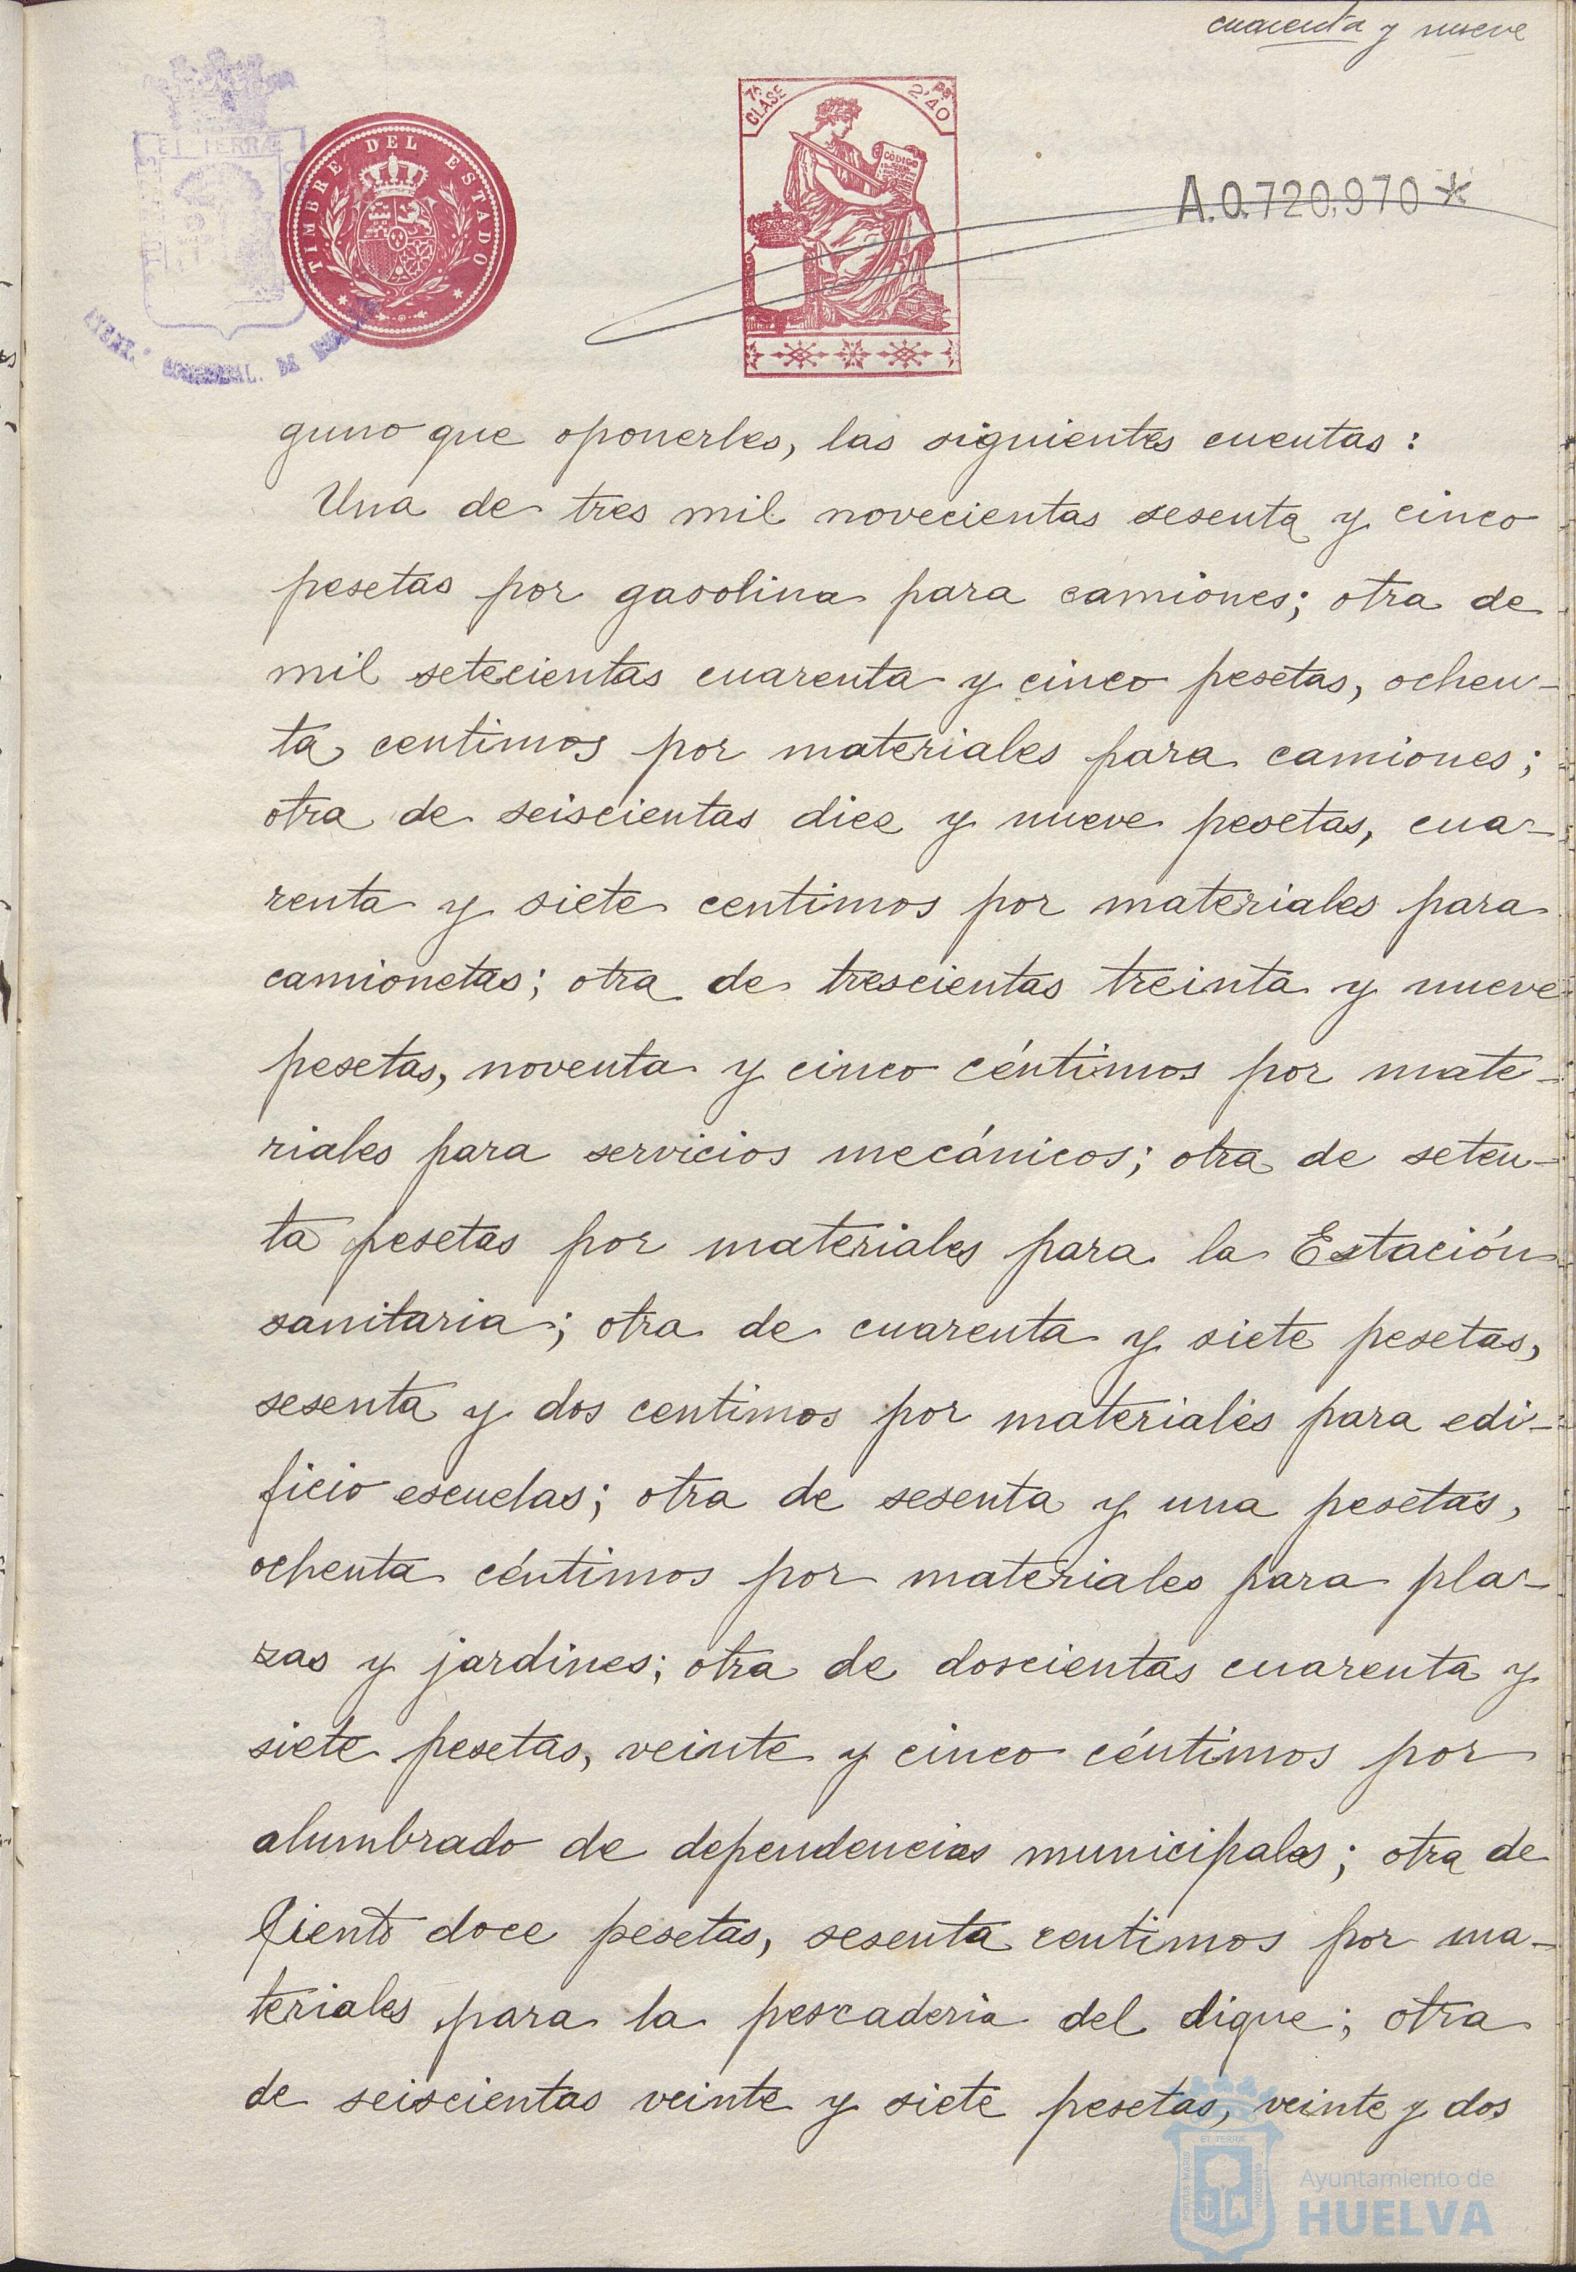 cuarenta y nueve
7ª CLASE
2'40 PS
CÓDIGO
ET TERRÆ
TIMBRE DEL ESTADO
A.0.720.970*
guno que oponerles, las siguientes cuentas:
Una de tres mil novecientas sesenta y cinco
pesetas por gasolina para camiones; otra de
mil setecientas cuarenta y cinco pesetas, ochen-
ta centimos por materiales para camiones;
otra de seiscientas diez y nueve pesetas, cua-
renta y siete centimos por materiales para
camionetas; otra de trescientas treinta y nueve
pesetas, noventa y cinco céntimos por mate-
riales para servicios mecánicos; otra de seten-
ta pesetas por materiales para la Estación
sanitaria; otra de cuarenta y siete pesetas,
sesenta y dos centimos por materiales para edi-
ficio escuelas; otra de sesenta y una pesetas,
ochenta céntimos por materiales para pla-
zas y jardines; otra de doscientas cuarenta y
siete pesetas, veinte y cinco céntimos por
alumbrado de dependencias municipales; otra de
ciento doce pesetas, sesenta centimos por ma-
teriales para la pescaderia del dique; otra
de seiscientas veinte y siete pesetas, veinte y dos
ET TERRÆ
Ayuntamiento de
HUELVA